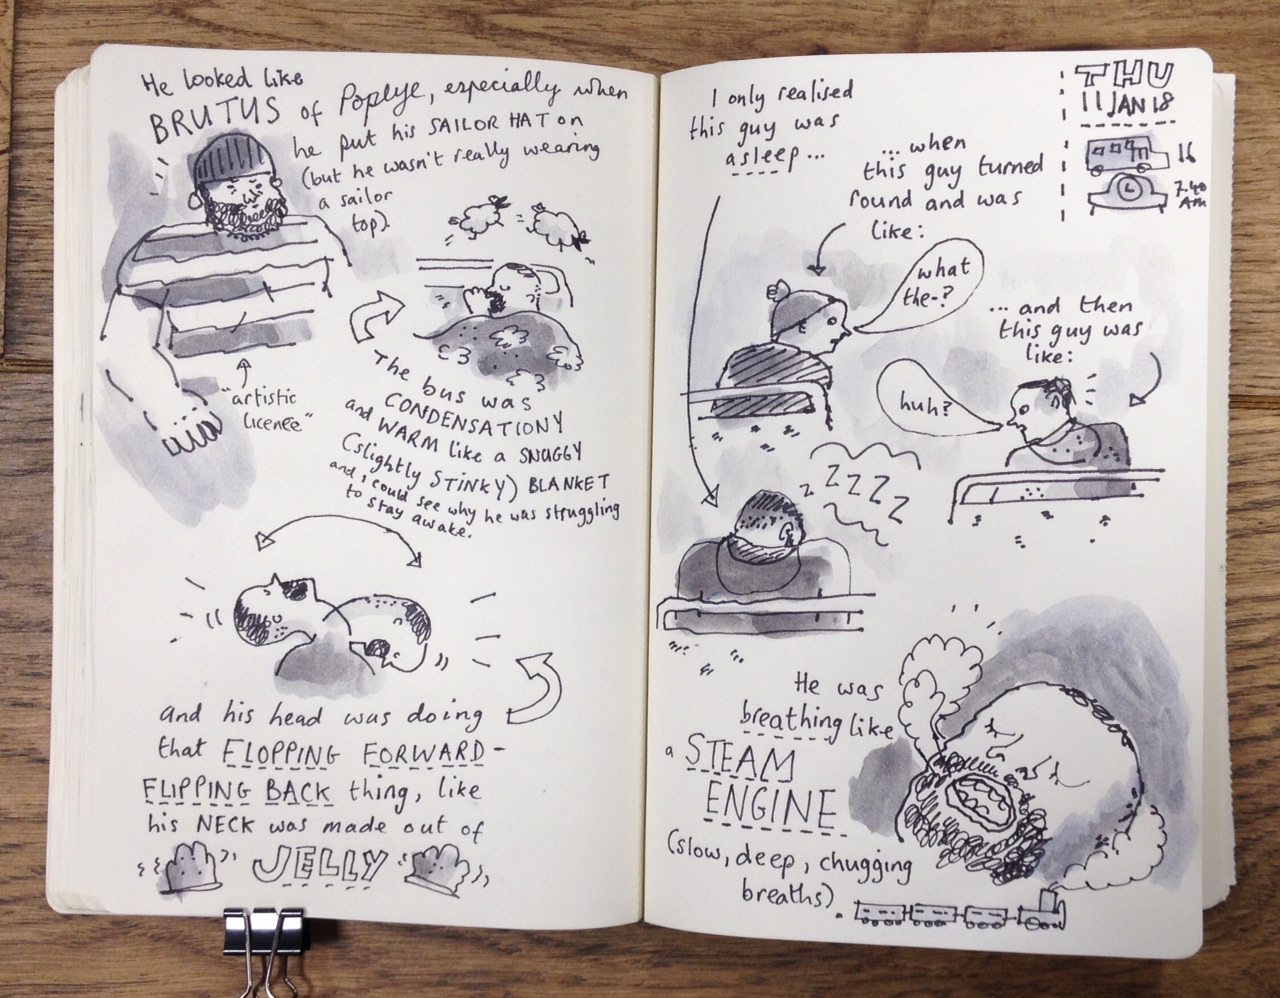 He looked like
BRUTUS of Popeye, especially when
he put his SAILOR HAT on
(but he wasn't really wearing
a sailor
top).
"artistic
licence"
The bus was
CONDENSATIONY
and WARM like a SNUGGY
(slightly STINKY) BLANKET
and I could see why he was struggling
to stay awake.
and his head was doing
that FLOPPING FORWARD-
FLIPPING BACK thing, like
his NECK was made out of
JELLY
THU
11 JAN 18
16
L
7.40
AM
I only realised
this guy was
asleep...
...when
this guy turned
round and was
like:
what
the-?
...and then
this guy was
like:
huh?
z ZZZZ
He was
breathing like
a STEAM
ENGINE
(slow, deep, chugging
breaths).